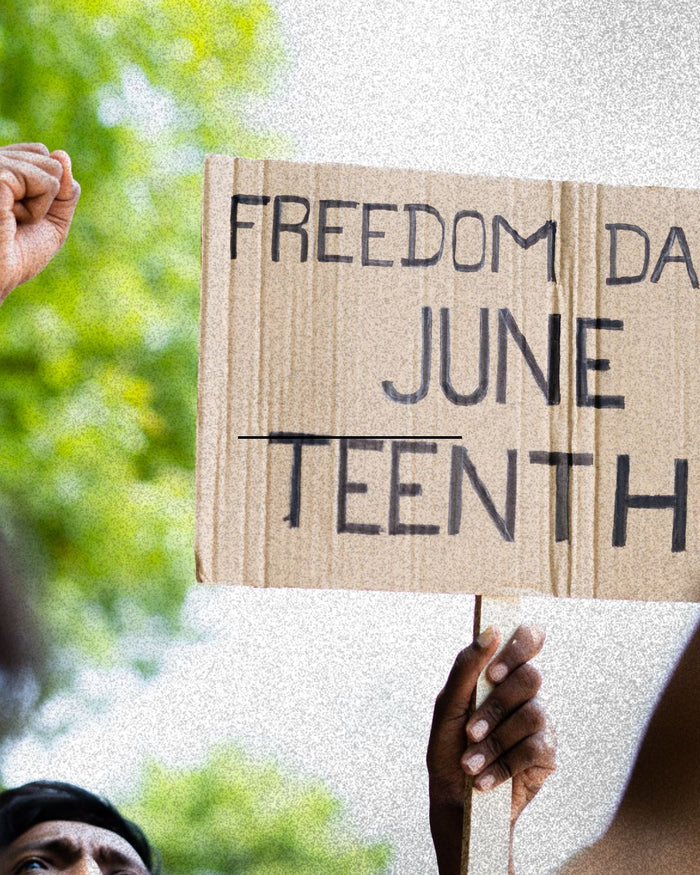 FREEDOM DA
JUNE
TEENTH